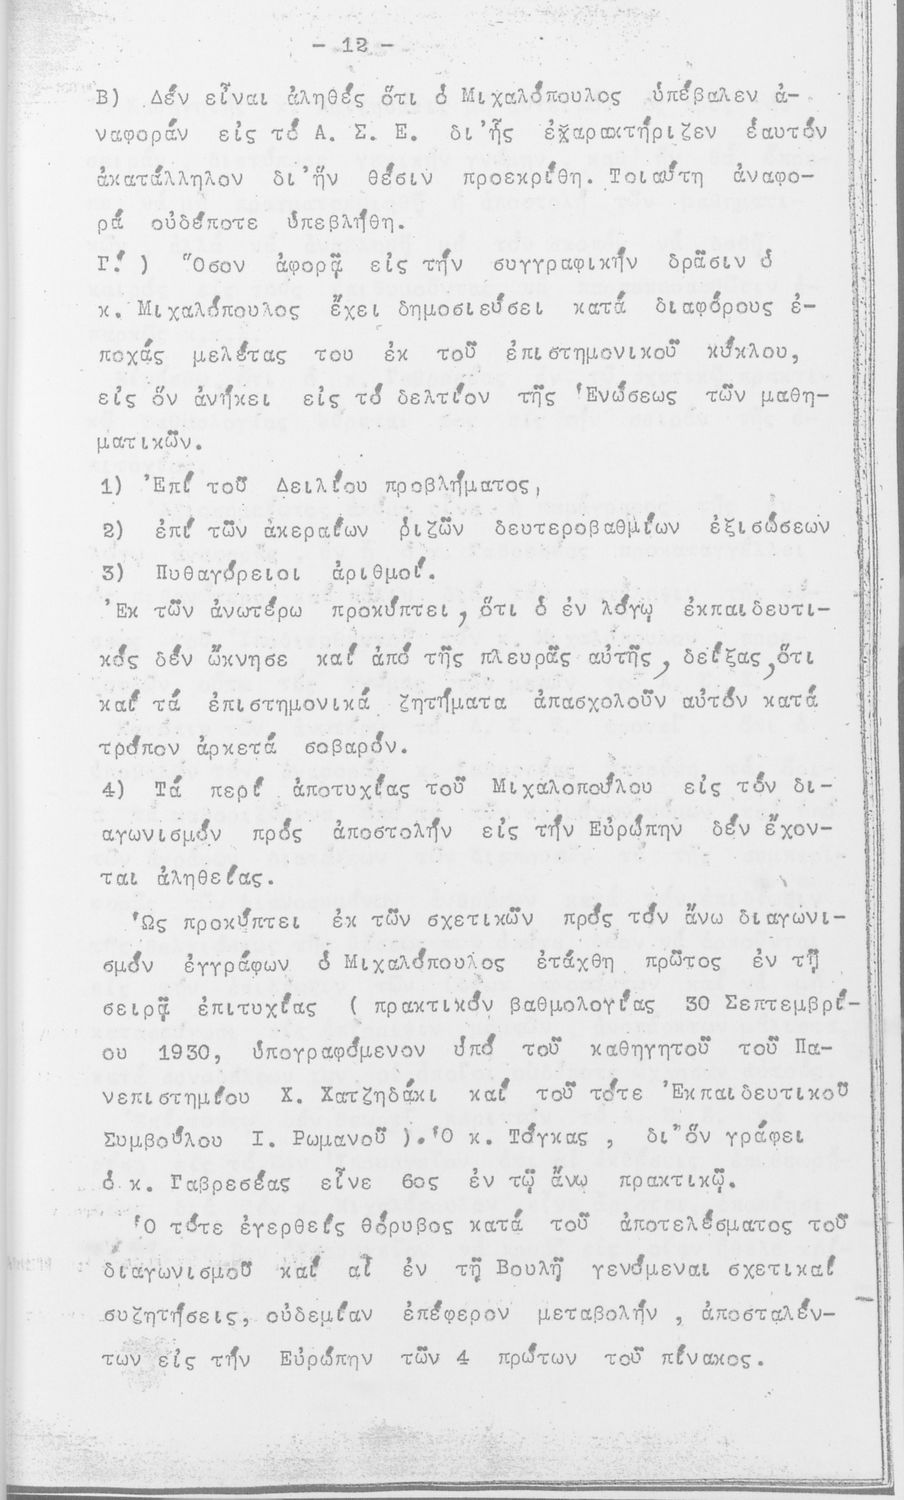 - 12 -
Β) Δέν εἶναι ἀληθές ὅτι ὁ Μιχαλόπουλος ὑπέβαλεν ἀ-
ναφοράν εἰς τό Α. Σ. Ε. δι'ἧς ἐχαρακτήριζεν ἑαυτόν
ἀκατάλληλον δι'ἥν θέσιν προεκρίθη. Τοιαύτη ἀναφο-
ρά οὐδέποτε ὑπεβλήθη.
Γ.' ) Ὅσον ἀφορᾷ εἰς τήν συγγραφικήν δρᾶσιν ὁ
κ. Μιχαλόπουλος ἔχει δημοσιεύσει κατά διαφόρους ἐ-
ποχάς μελέτας του ἐκ τοῦ ἐπιστημονικοῦ κύκλου,
εἰς ὅν ἀνήκει εἰς τό δελτίον τῆς Ἑνώσεως τῶν μαθη-
ματικῶν.
1) Ἐπί τοῦ Δειλίου προβλήματος,
2) ἐπί τῶν ἀκεραίων ῥιζῶν δευτεροβαθμίων ἐξισώσεων
3) Πυθαγόρειοι ἀριθμοί.
Ἐκ τῶν ἀνωτέρω προκύπτει, ὅτι ὁ ἐν λόγῳ ἐκπαιδευτι-
κός δέν ὤκνησε καί ἀπό τῆς πλευρᾶς αὐτῆς, δείξας, ὅτι
καί τά ἐπιστημονικά ζητήματα ἀπασχολοῦν αὐτόν κατά
τρόπον ἀρκετά σοβαρόν.
4) Τά περί ἀποτυχίας τοῦ Μιχαλοπούλου εἰς τόν δι-
αγωνισμόν πρός ἀποστολήν εἰς τήν Εὐρώπην δέν ἔχον-
ται ἀληθείας.
Ὡς προκύπτει ἐκ τῶν σχετικῶν πρός τόν ἄνω διαγωνι-
σμόν ἐγγράφων ὁ Μιχαλόπουλος ἐτάχθη πρῶτος ἐν τῇ
σειρᾷ ἐπιτυχίας ( πρακτικόν βαθμολογίας 30 Σεπτεμβρί-
ου 1930, ὑπογραφόμενον ὑπό τοῦ καθηγητοῦ τοῦ Πα-
νεπιστημίου Χ. Χατζηδάκι καί τοῦ τότε Ἐκπαιδευτικοῦ
Συμβούλου Ι. Ρωμανοῦ ). Ὁ κ. Τόγκας , δι"ὅν γράφει
ὁ κ. Γαβρεσέας εἶνε 6ος ἐν τῷ ἄνῳ πρακτικῷ.
Ὁ τότε ἐγερθείς θόρυβος κατά τοῦ ἀποτελέσματος τοῦ
διαγωνισμοῦ καί αἱ ἐν τῇ Βουλῇ γενόμεναι σχετικαί
συζητήσεις, οὐδεμίαν ἐπέφερον μεταβολήν , ἀποσταλέν-
των εἰς τήν Εὐρώπην τῶν 4 πρώτων τοῦ πίνακος.